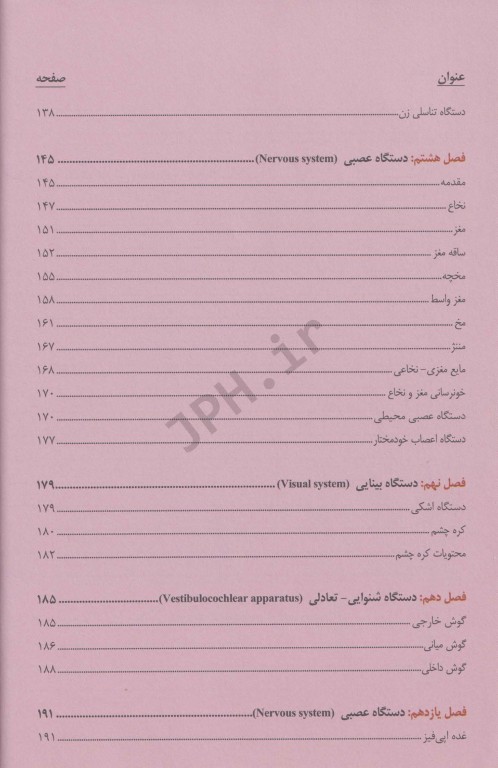 عنوان صفحه
دستگاه تناسلی زن ۱۳۸
فصل هشتم: دستگاه عصبی (Nervous system) ۱۴۵
مقدمه ۱۴۵
نخاع ۱۴۷
مغز ۱۵۱
ساقه مغز ۱۵۲
مخچه ۱۵۵
مغز واسط ۱۵۸
مخ ۱۶۱
مننژ ۱۶۷
مایع مغزی- نخاعی ۱۶۸
خونرسانی مغز و نخاع ۱۷۰
دستگاه عصبی محیطی ۱۷۰
دستگاه اعصاب خودمختار ۱۷۷
فصل نهم: دستگاه بینایی (Visual system) ۱۷۹
دستگاه اشکی ۱۷۹
کره چشم ۱۸۰
محتویات کره چشم ۱۸۲
فصل دهم: دستگاه شنوایی- تعادلی (Vestibulocochlear apparatus) ۱۸۵
گوش خارجی ۱۸۵
گوش میانی ۱۸۶
گوش داخلی ۱۸۸
فصل یازدهم: دستگاه عصبی (Nervous system) ۱۹۱
غده اپی‌فیز ۱۹۱
JPH.ir